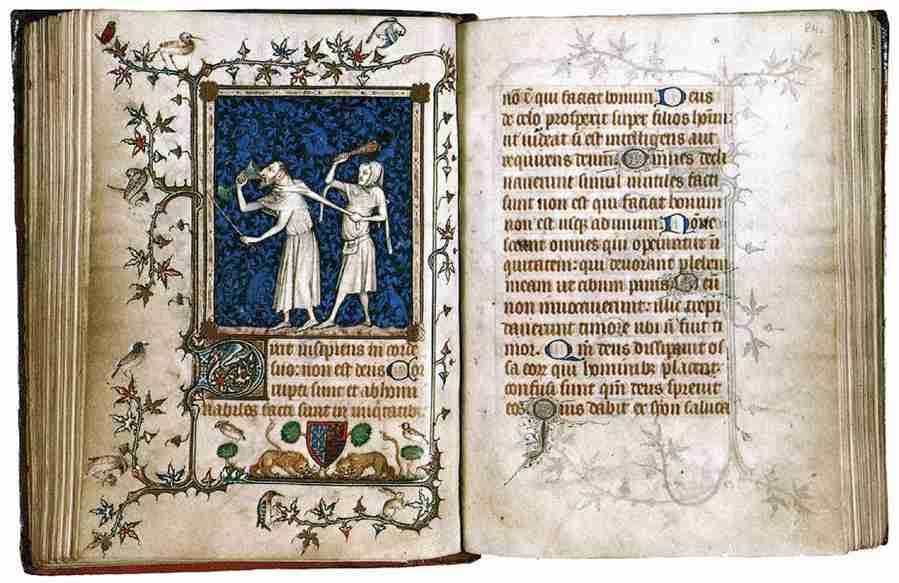 Dixit insipiens in corde
suo: non est deus Cor
rupti sunt et abhomi
nabiles facti sunt in iniquitatib;
84.
nō ē qui faciat bonum Deus
de celo prospexit super filios homi
ut uideat si est intelligens aut
requirens deum. Omnes decli
nauerunt simul inutiles facti
sunt non est qui faciat bonum
non est usq; ad unum Nonne
scient omnes qui operantur in
quitatem: qui deuorant plebem
meam ut cibum panis Deū
non inuocauerunt: illic trepi
dauerunt timore ubi nō fuit ti
mor. Qm̄ deus dissipauit os
sa eorͬ qui hominib; placent:
confusi sunt qm̄ deus spreuit
eos Quis dabit ex syon saluta